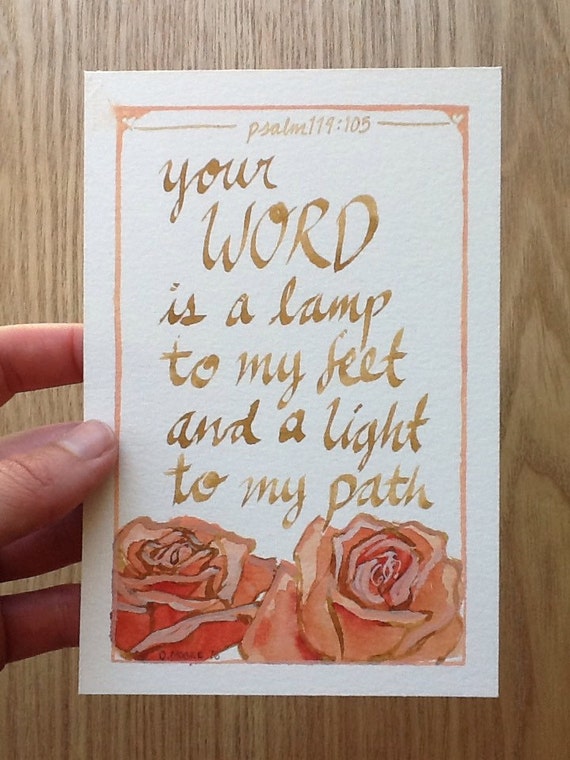 psalm 119:105
your
WORD
is a lamp
to my feet
and a light
to my path